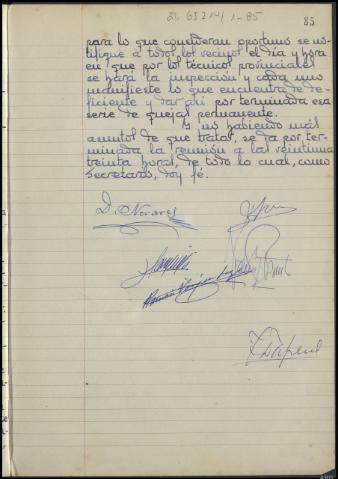 85
para lo que consideran oportuno se no-
tifique a todos los vecinos el día y hora
en que por los técnicos provinciales
se hará la inspección y cada uno
manifieste lo que encuentra de de-
ficiente y dar ahí por terminada esa
serie de quejas permanente.
Y no habiendo más
asuntos de que tratar, se da por ter-
minada la reunión a las veintiuna
treinta horas, de todo lo cual, como
Secretario, doy fé.
D. Nevares